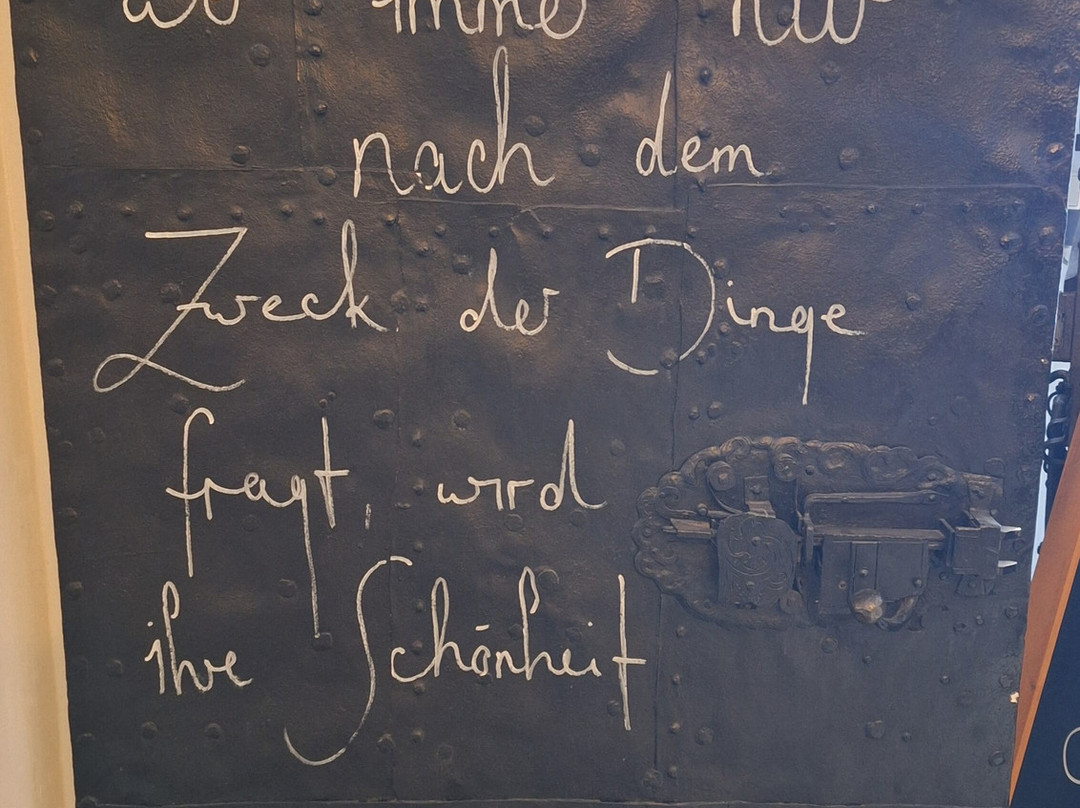 nach dem
Zweck der Dinge
fragt, wird
ihre Schönheit